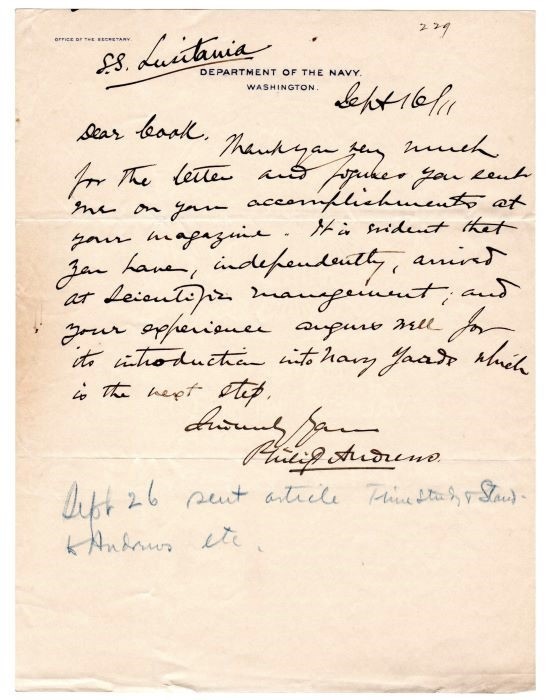 229
OFFICE OF THE SECRETARY.
S.S. Lusitania
DEPARTMENT OF THE NAVY.
WASHINGTON.
Sept 16/11
Dear Cook.
Thank you very much
for the letter and figures you sent
me on your accomplishments at
your magazine. It is evident that
you have, independently, arrived
at Scientific management; and
your experience augurs well for
its introduction into Navy Yards which
is the next step.
Sincerely Yours
Philip Andrews.
Sept 26 sent article Time Study & Stand-
to Andrews etc.